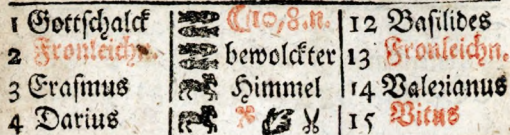 1 Gottschalck ☾/10/8.n. 12 Basilides
2 Fronleichn. bewolckter 13 Fronleichn.
3 Erasmus Himmel 14 Valerianus
4 Darius 15 Vitus